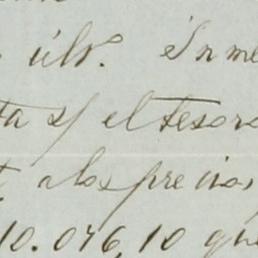 últº. Inme
ta y el tesoro
a los precios
10.046,10 que